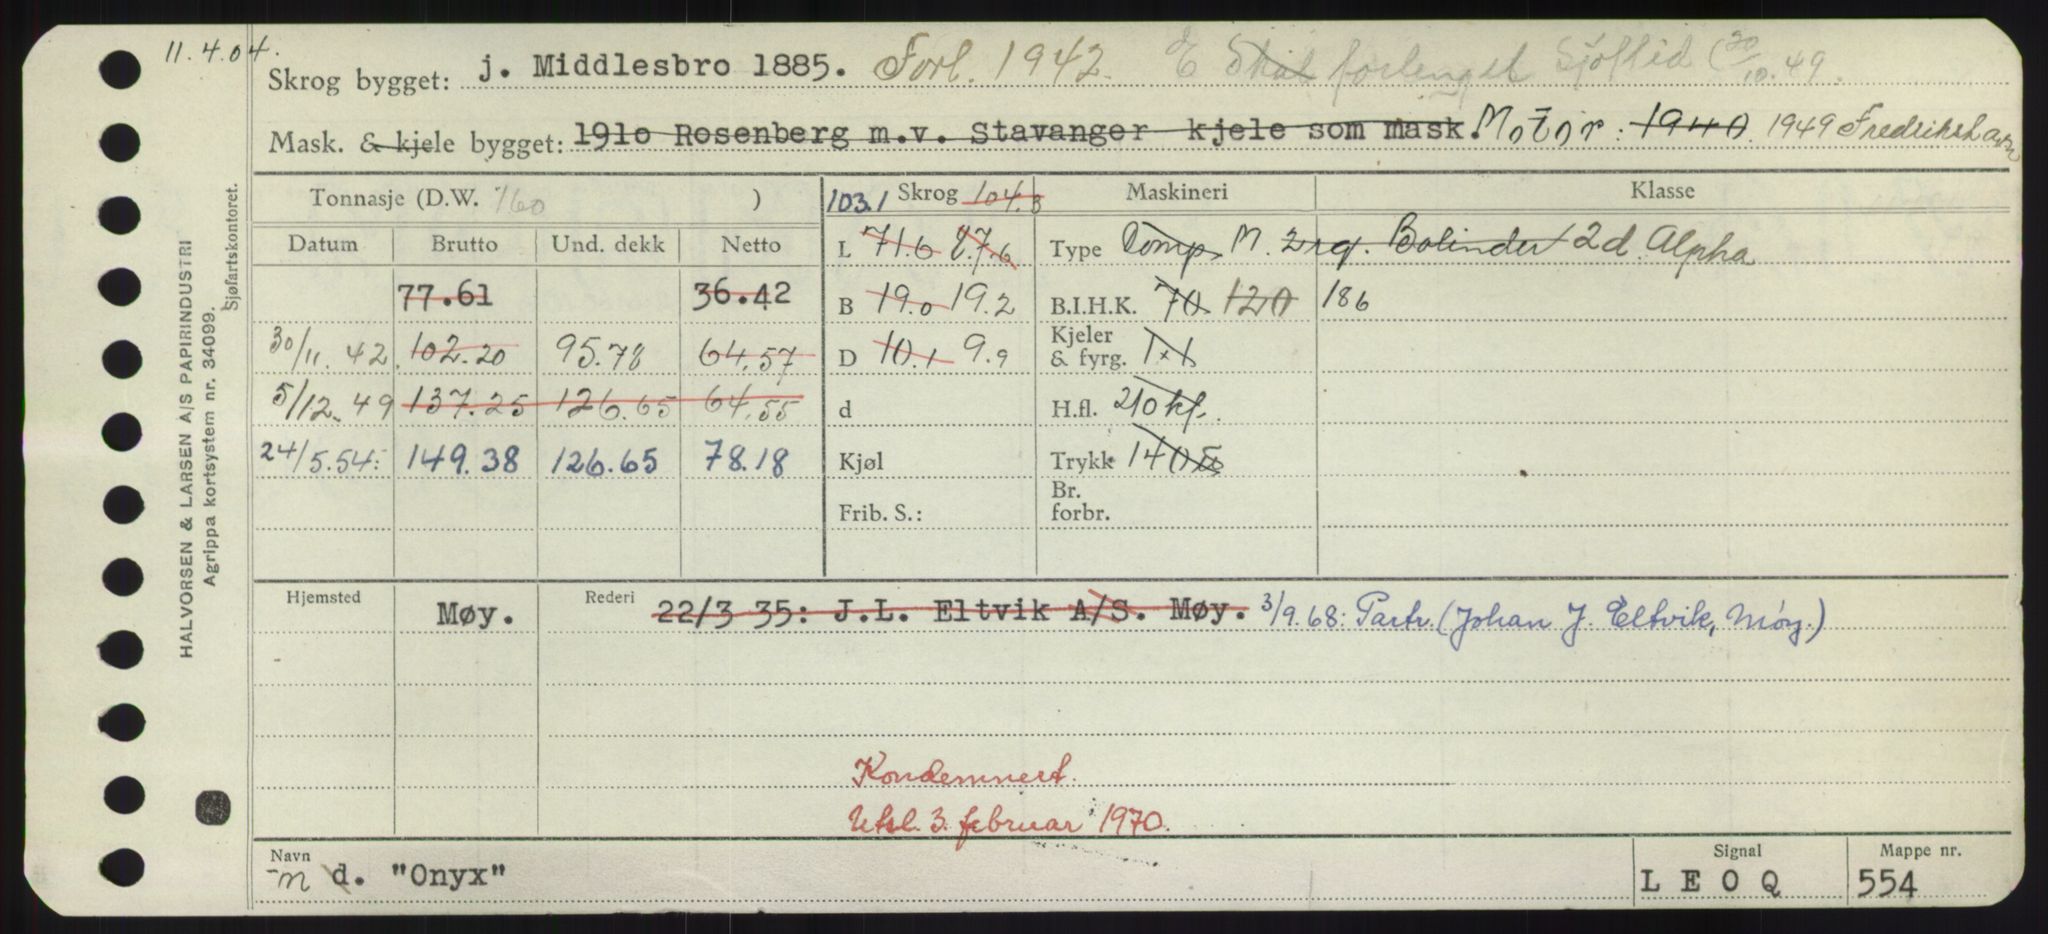 11.4.04.
Skrog bygget: j. Middlesbro 1885. Forl. 1942. E Skal forlenget Sjøftid (20/10.49.
Mask. & kjele bygget: 1910 Rosenberg m.v. Stavanger kjele som mask. Motor: 1940. 1949 Fredrikshavn
Tonnasje (D.W. 160 ) 103.1 Skrog 104.3 Maskineri Klasse
Datum Brutto Und. dekk Netto L 71.6 87.6 Type Comp. M. 2 rg. Bolinder 2d. Alpha
77.61 36.42 B 19.0 19.2 B.I.H.K. 70 120 186
30/11.42. 102.20 95.78 64.57 D 10.1 9.9 Kjeler & fyrg. 1x1
5/12.49 137.25 126.65 64.55 d H.fl. 210 kf.
24/5.54: 149.38 126.65 78.18 Kjøl Trykk 140
Frib. S.: Br. forbr.
Hjemsted Møy. Rederi 22/3 35: J.L. Eltvik A/S. Møy. 3/9.68: Partr. (Johan J. Eltvik, Møy.)
Kondemnert.
Utsl. 3. februar 1970.
Navn Signal Mappe nr.
m d. "Onyx" L E O Q 554
HALVORSEN & LARSEN A/S PAPIRINDUSTRI
Agrippa kortsystem nr. 34099.
Sjøfartskontoret.